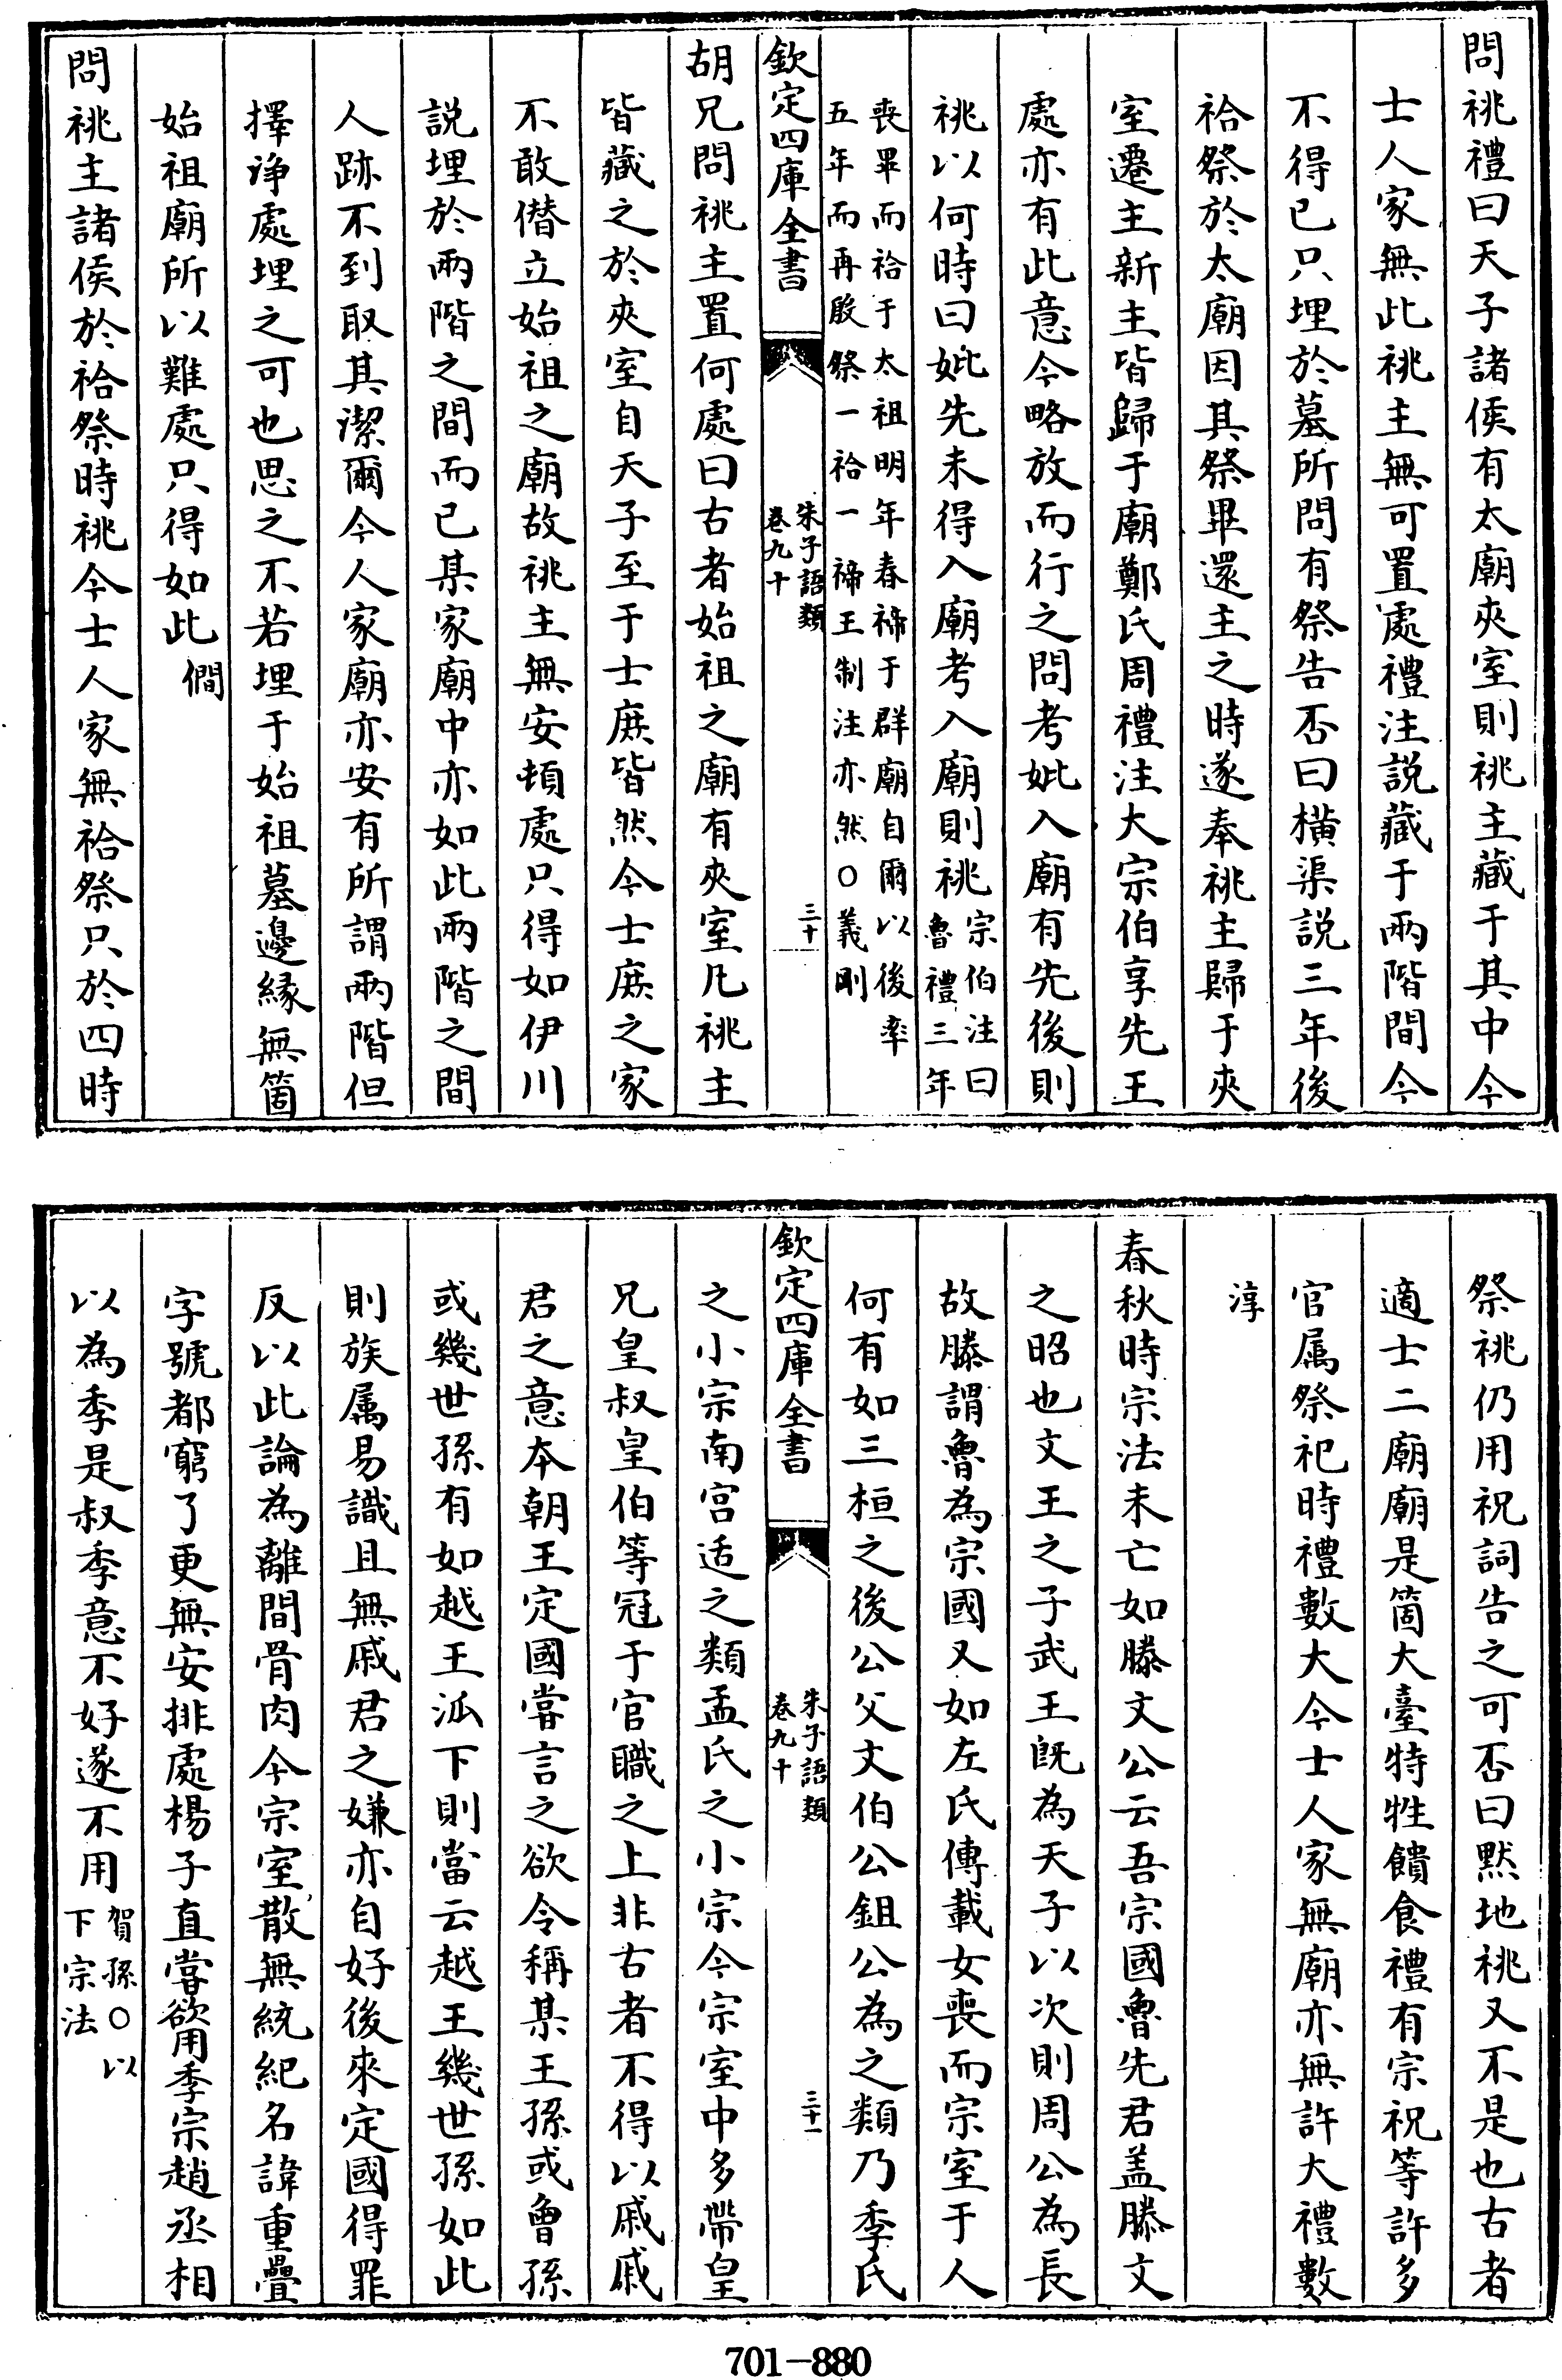 問祧禮曰天子諸侯有太廟夾室則祧主藏于其中今
士人家無此祧主無可置處禮注説藏于兩階間今
不得已只埋於墓所問有祭告否曰横渠説三年後
祫祭於太廟因其祭畢還主之時遂奉祧主歸于夾
室遷主新主皆歸于廟鄭氏周禮注大宗伯享先王
處亦有此意今略放而行之問考妣入廟有先後則
祧以何時曰妣先未得入廟考入廟則祧宗伯注曰
魯禮三年
喪畢而祫于太祖明年春禘于群廟自爾以後率
五年而再殷祭一祫一禘王制注亦然○義剛
欽定四庫全書
朱子語類
卷九十
三十
胡兄問祧主置何處曰古者始祖之廟有夾室凡祧主
皆藏之於夾室自天子至于士庶皆然今士庶之家
不敢僭立始祖之廟故祧主無安頓處只得如伊川
説埋於兩階之間而已某家廟中亦如此兩階之間
人跡不到取其潔爾今人家廟亦安有所謂兩階但
擇淨處埋之可也思之不若埋于始祖墓邊緣無箇
始祖廟所以難處只得如此僩
問祧主諸侯於祫祭時祧今士人家無祫祭只於四時
祭祧仍用祝詞告之可否曰默地祧又不是也古者
適士二廟廟是箇大臺特牲饋食禮有宗祝等許多
官属祭祀時禮數大今士人家無廟亦無許大禮數
淳
春秋時宗法未亡如滕文公云吾宗國魯先君盖滕文
之昭也文王之子武王既為天子以次則周公為長
故滕謂魯為宗國又如左氏傳載女喪而宗室于人
何有如三桓之後公父文伯公鉏公為之類乃季氏
欽定四庫全書
朱子語類
卷九十
三十一
之小宗南宫适之類孟氏之小宗今宗室中多帶皇
兄皇叔皇伯等冠于官職之上非古者不得以戚戚
君之意本朝王定國嘗言之欲令稱某王孫或曾孫
或幾世孫有如越王派下則當云越王幾世孫如此
則族属易識且無戚君之嫌亦自好後來定國得罪
反以此論為離間骨肉今宗室散無統紀名諱重疊
字號都窮了更無安排處楊子直嘗欲用季宗趙丞相
以為季是叔季意不好遂不用賀孫○以
下宗法
701-880